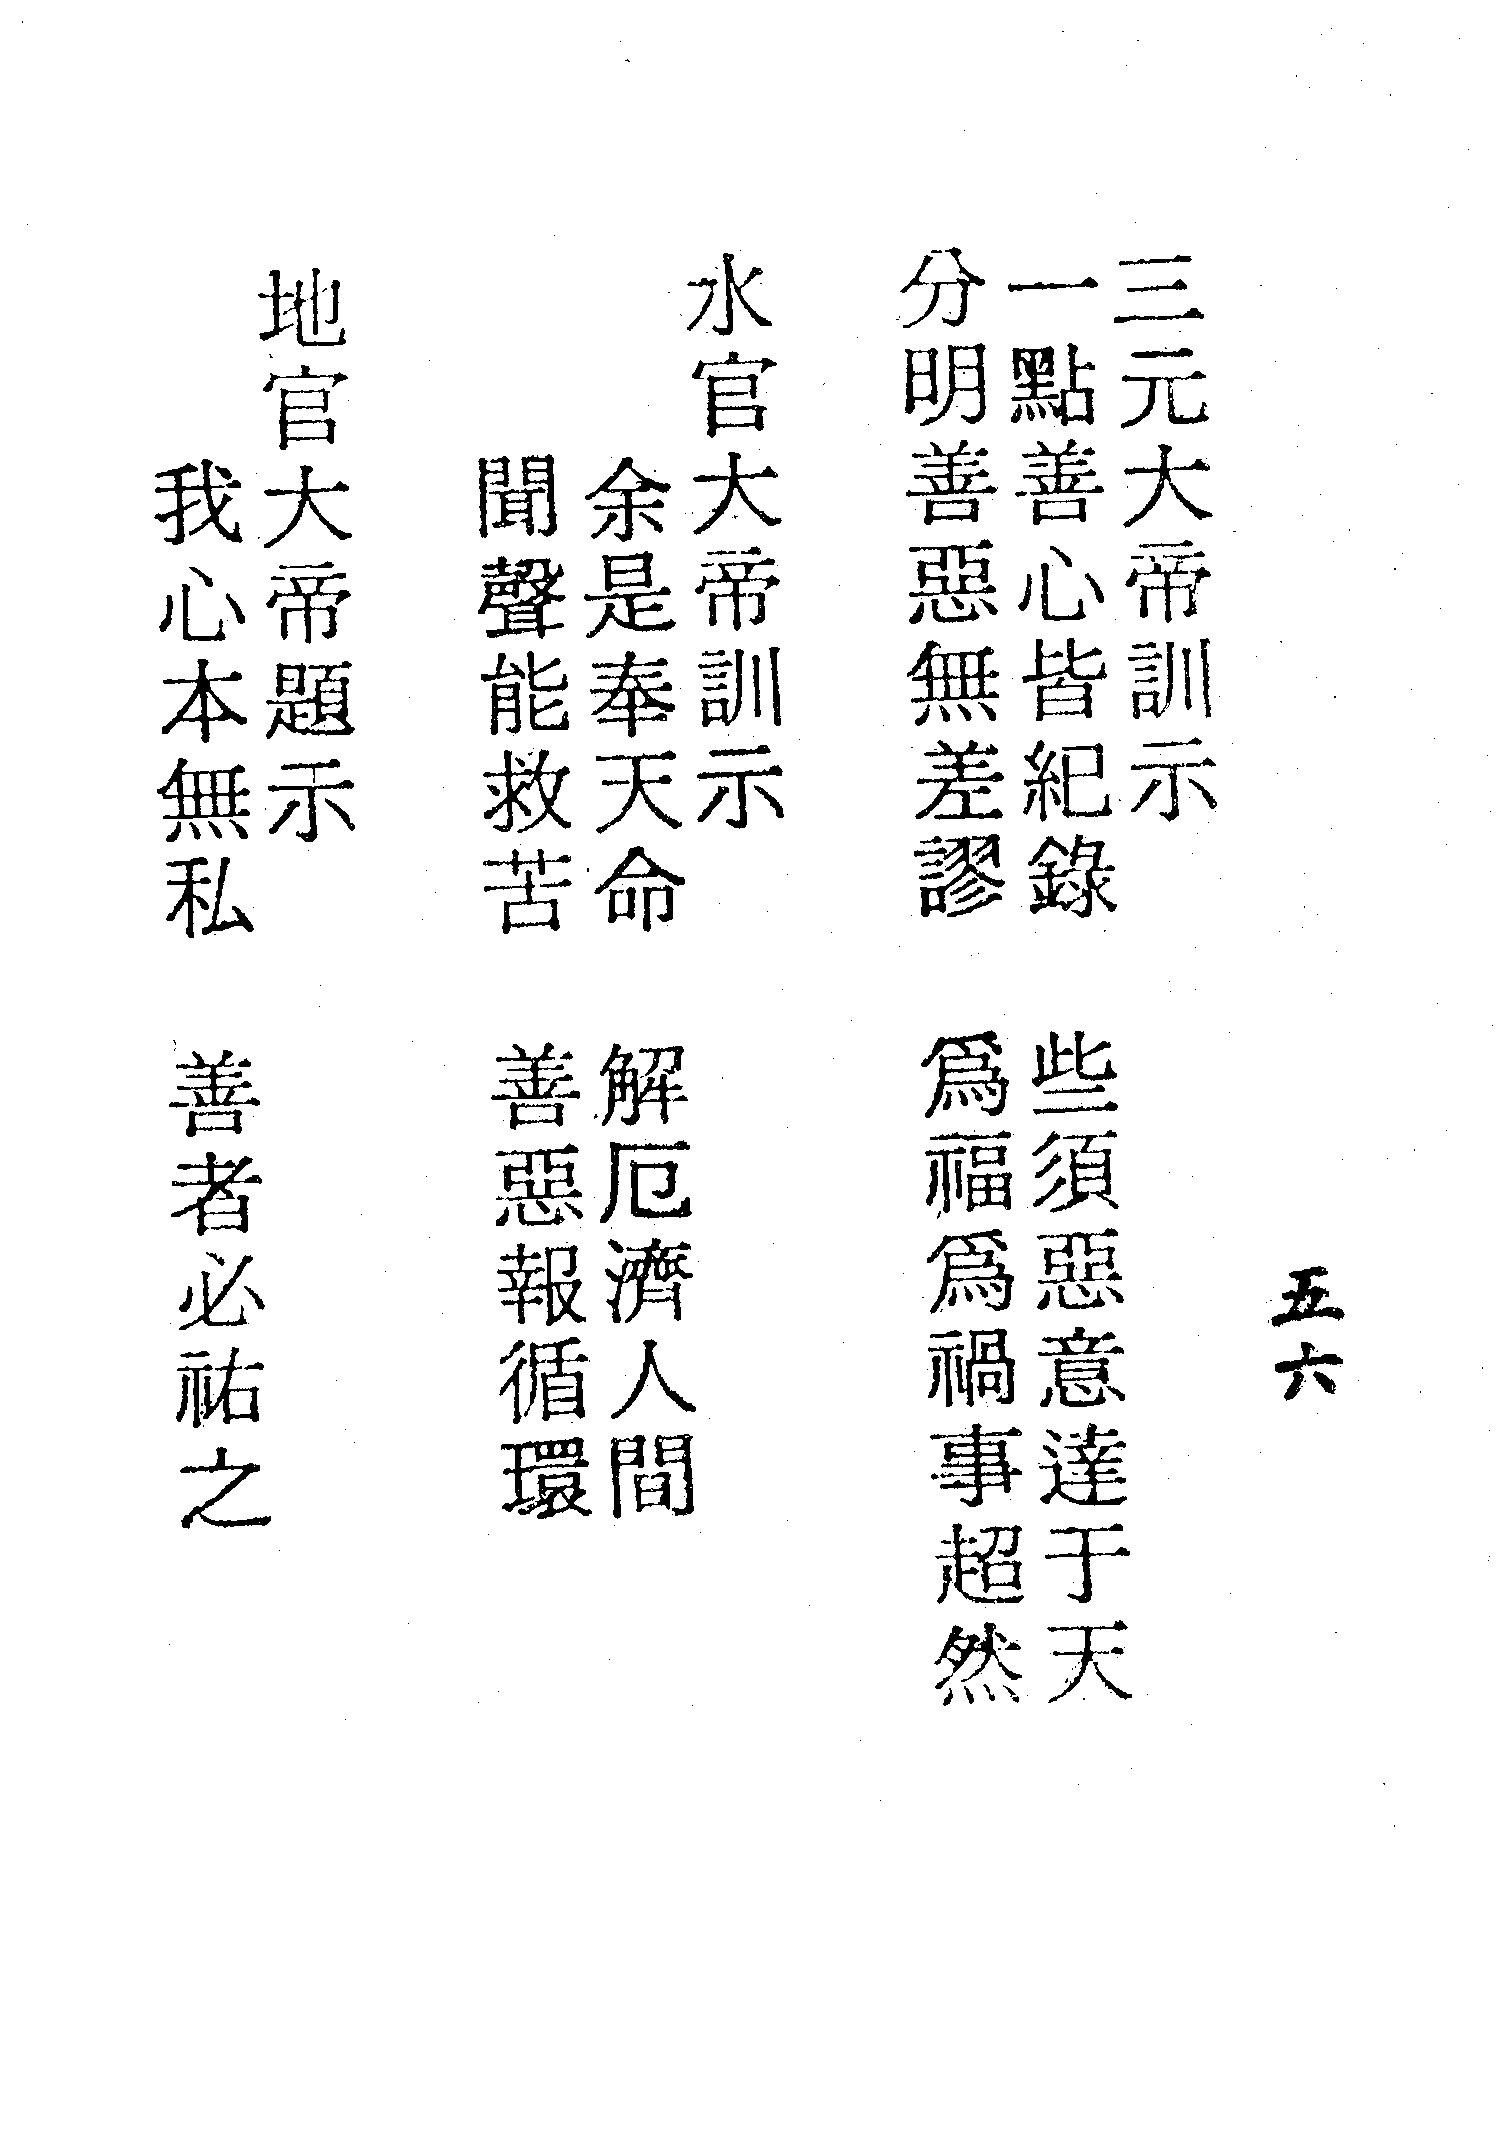 五六
三元大帝訓示
一點善心皆紀錄　些須惡意達于天
分明善惡無差謬　爲福爲禍事超然
水官大帝訓示
余是奉天命　解厄濟人間
聞聲能救苦　善惡報循環
地官大帝題示
我心本無私　善者必祐之